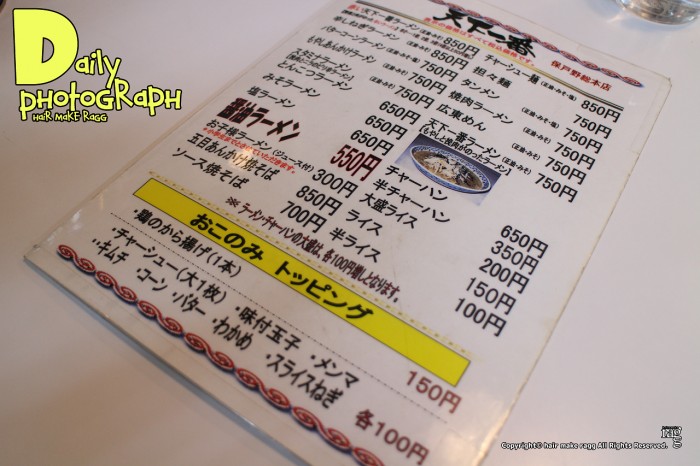 Daily
PHOtOGRAPH
HAiR MAKE RAGG
天下一番
保戸野総本店
850円
チャーシュー麺 (正油・みそ・塩) 850円
バターコーンラーメン (正油・みそ・塩) 750円
担々麺 750円
もやしあんかけラーメン
タンメン 750円
スタミナラーメン
焼肉ラーメン (正油・みそ) 750円
とんこつラーメン 650円
広東めん 750円
みそラーメン 650円
天下一番ラーメン (正油・みそ) 750円
塩ラーメン 650円
醤油ラーメン 550円
チャーハン 650円
お子様ラーメン (ジュース付) 300円
半チャーハン 350円
五目あんかけ焼そば 850円
大盛ライス 200円
ソース焼そば 700円
ライス 150円
半ライス 100円
※ラーメン・チャーハンの大盛は、各100円増しとなります。
おこのみ トッピング
・鶏のから揚げ(1本)
・チャーシュー(大1枚) ・味付玉子 ・メンマ 150円
・キムチ ・コーン ・バター ・わかめ ・スライスねぎ 各100円
Copyright© hair make ragg All Rights Reserved.